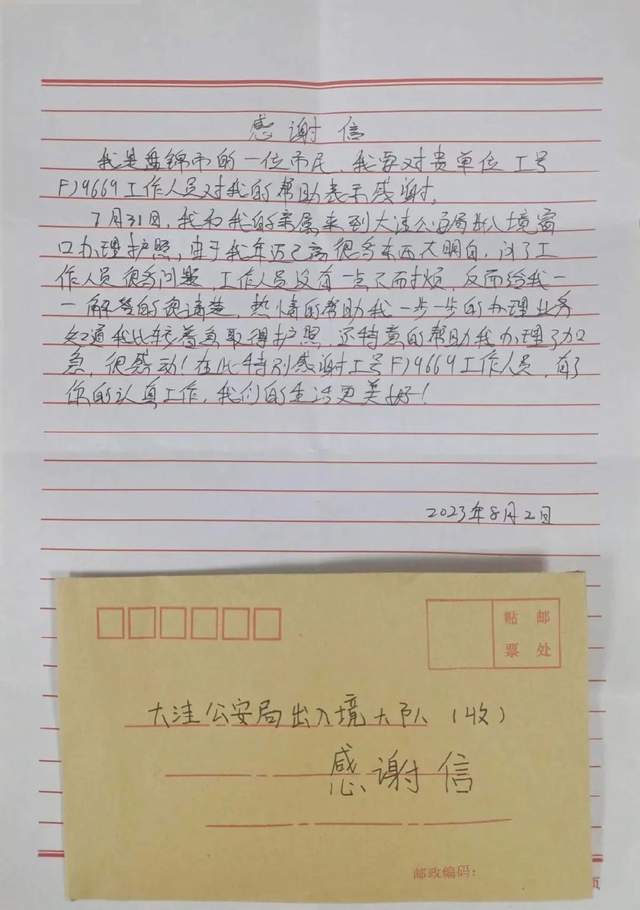 感谢信
我是盘锦市的一位市民，我要对贵单位工号
FJ9669工作人员对我的帮助表示感谢。
7月31日，我和我的亲属来到大洼公安局出入境窗
口办理护照，由于我年迈已高很多东西不明白，问了工
作人员很多问题，工作人员没有一点不耐烦，反而给我一
一解答的很清楚，热情的帮助我一步一步的办理业务
知道我比较着急取得护照，还特意的帮助我办理了加
急，很感动！在此特别感谢工号FJ9669工作人员，有了
你的认真工作，我们的生活更美好！
2023年8月2日
贴邮
票处
大洼公安局出入境大队（收）
感谢信
邮政编码：
页